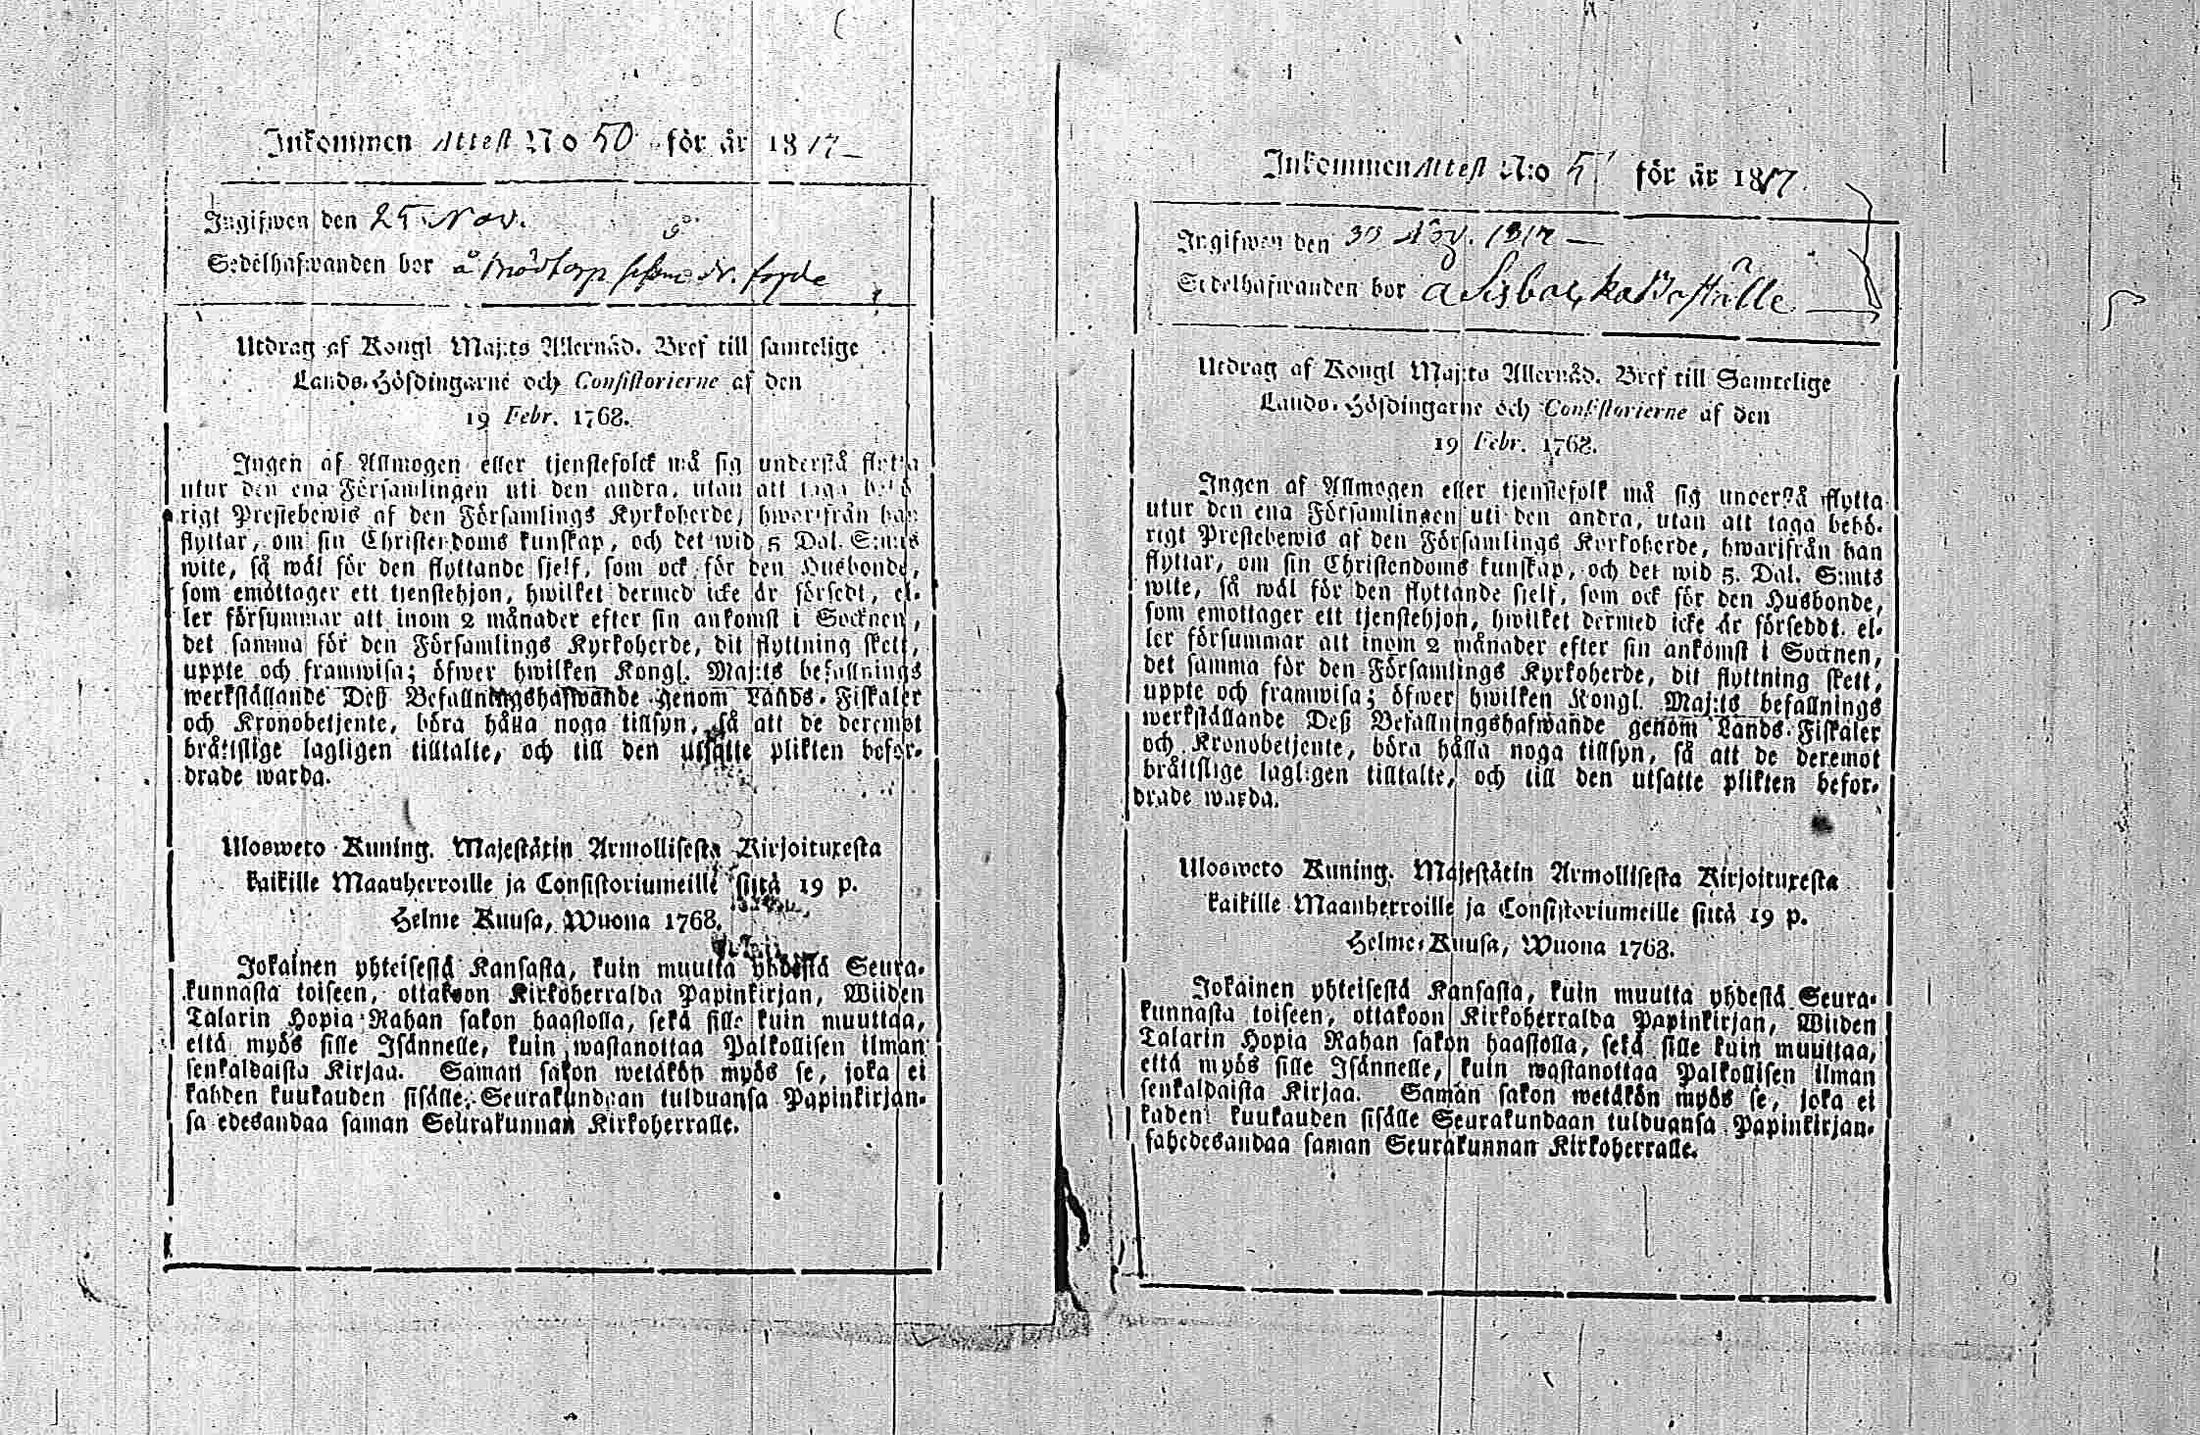 Inkommen Attest No 50 för år 1817
Ingifwen den 25 Nov.
Sedelhafwanden bor å
Utdrag af Kongl Maj:ts Allernåd. Bref till samtelige
Lands-Höfdingarne och Consistorierne af den
19 Febr. 1768.
Ingen af Allmogen eller tjenstefolck må sig understå flytta
utur den ena Församlingen uti den andra, utan att taga behö
rigt Prestebewis af den Församlings Kyrkoherde, hwarifrån han
flyttar, om sin Christendoms kunskap, och det wid 5 Dal. S:mts
wite, så wäl för den flyttande sjelf, som ock för den Husbonde,
som emottager ett tjenstehjon, hwilket dermed icke är försedt, el-
ler försummar att inom 2 månader efter sin ankomst i Socknen,
det samma för den Församlings Kyrkoherde, dit flyttning skett,
uppte och framwisa; öfwer hwilken Kongl. Maj:ts befallnings
werkställande Deß Befallningshafwande genom Lands-Fiskaler
och Kronobetjente, böra hålla noga tillsyn, så att de deremot
bråttslige lagligen tilltalte, och till den utsatte plikten befor-
drade warda.
Ulosweto Kuning. Majestätin Armollisesta Kirjoituxesta
kaikille Maanherroille ja Consistoriumeille siitä 19 p.
Helme Kuusa, Wuona 1768.
Jokainen yhteisestä Kansasta, kuin muutta yhdestä Seura-
kunnasta toiseen, ottakoon Kirkoherralda Papinkirjan, Wiiden
Talarin Hopia Rahan sakon haastolla, sekä sille kuin muuttaa,
että myös sille Isännelle, kuin wastanottaa Palkollisen ilman
senkaldaista Kirjaa. Saman sakon wetäkön myös se, joka ei
kahden kuukauden sisälle, Seurakundaan tulduansa Papinkirjan-
sa edesandaa saman Seurakunnan Kirkoherralle.
Inkommen Attest N:o 51 för år 1817
Ingifwen den 30 Nov. 1817
Sedelhafwanden bor å
Utdrag af Kongl Maj:ts Allernåd. Bref till Samtelige
Lands-Höfdingarne och Consistorierne af den
19 Febr. 1768.
Ingen af Allmogen eller tjenstefolk må sig understå flytta
utur den ena Församlingen uti den andra, utan att taga behö-
rigt Prestebewis af den Församlings Kyrkoherde, hwarifrån han
flyttar, om sin Christendoms kunskap, och det wid 5. Dal. S:mts
wite, så wäl för den flyttande sjelf, som ock för den Husbonde,
som emottager ett tjenstehjon, hwilket dermed icke är förseddt, el-
ler försummar att inom 2 månader efter sin ankomst i Socknen,
det samma för den Församlings Kyrkoherde, dit flyttning skett,
uppte och framwisa; öfwer hwilken Kongl. Maj:ts befallnings
werkställande Deß Befallningshafwande genom Lands-Fiskaler
och Kronobetjente, böra hålla noga tillsyn, så att de deremot
bråttslige lagligen tilltalte, och till den utsatte plikten befor-
drade warda.
Ulosweto Kuning. Majestätin Armollisesta Kirjoituxesta
kaikille Maanherroille ja Consistoriumeille siitä 19 p.
Helme-Kuusa, Wuona 1768.
Jokainen yhteisestä Kansasta, kuin muutta yhdestä Seura-
kunnasta toiseen, ottakoon Kirkoherralda Papinkirjan, Wiiden
Talarin Hopia Rahan sakon haastolla, sekä sille kuin muuttaa,
että myös sille Isännelle, kuin wastanottaa Palkollisen ilman
senkaldaista Kirjaa. Saman sakon wetäkön myös se, joka ei
kaden kuukauden sisälle Seurakundaan tulduansa Papinkirjan-
sahedesandaa saman Seurakunnan Kirkoherralle.